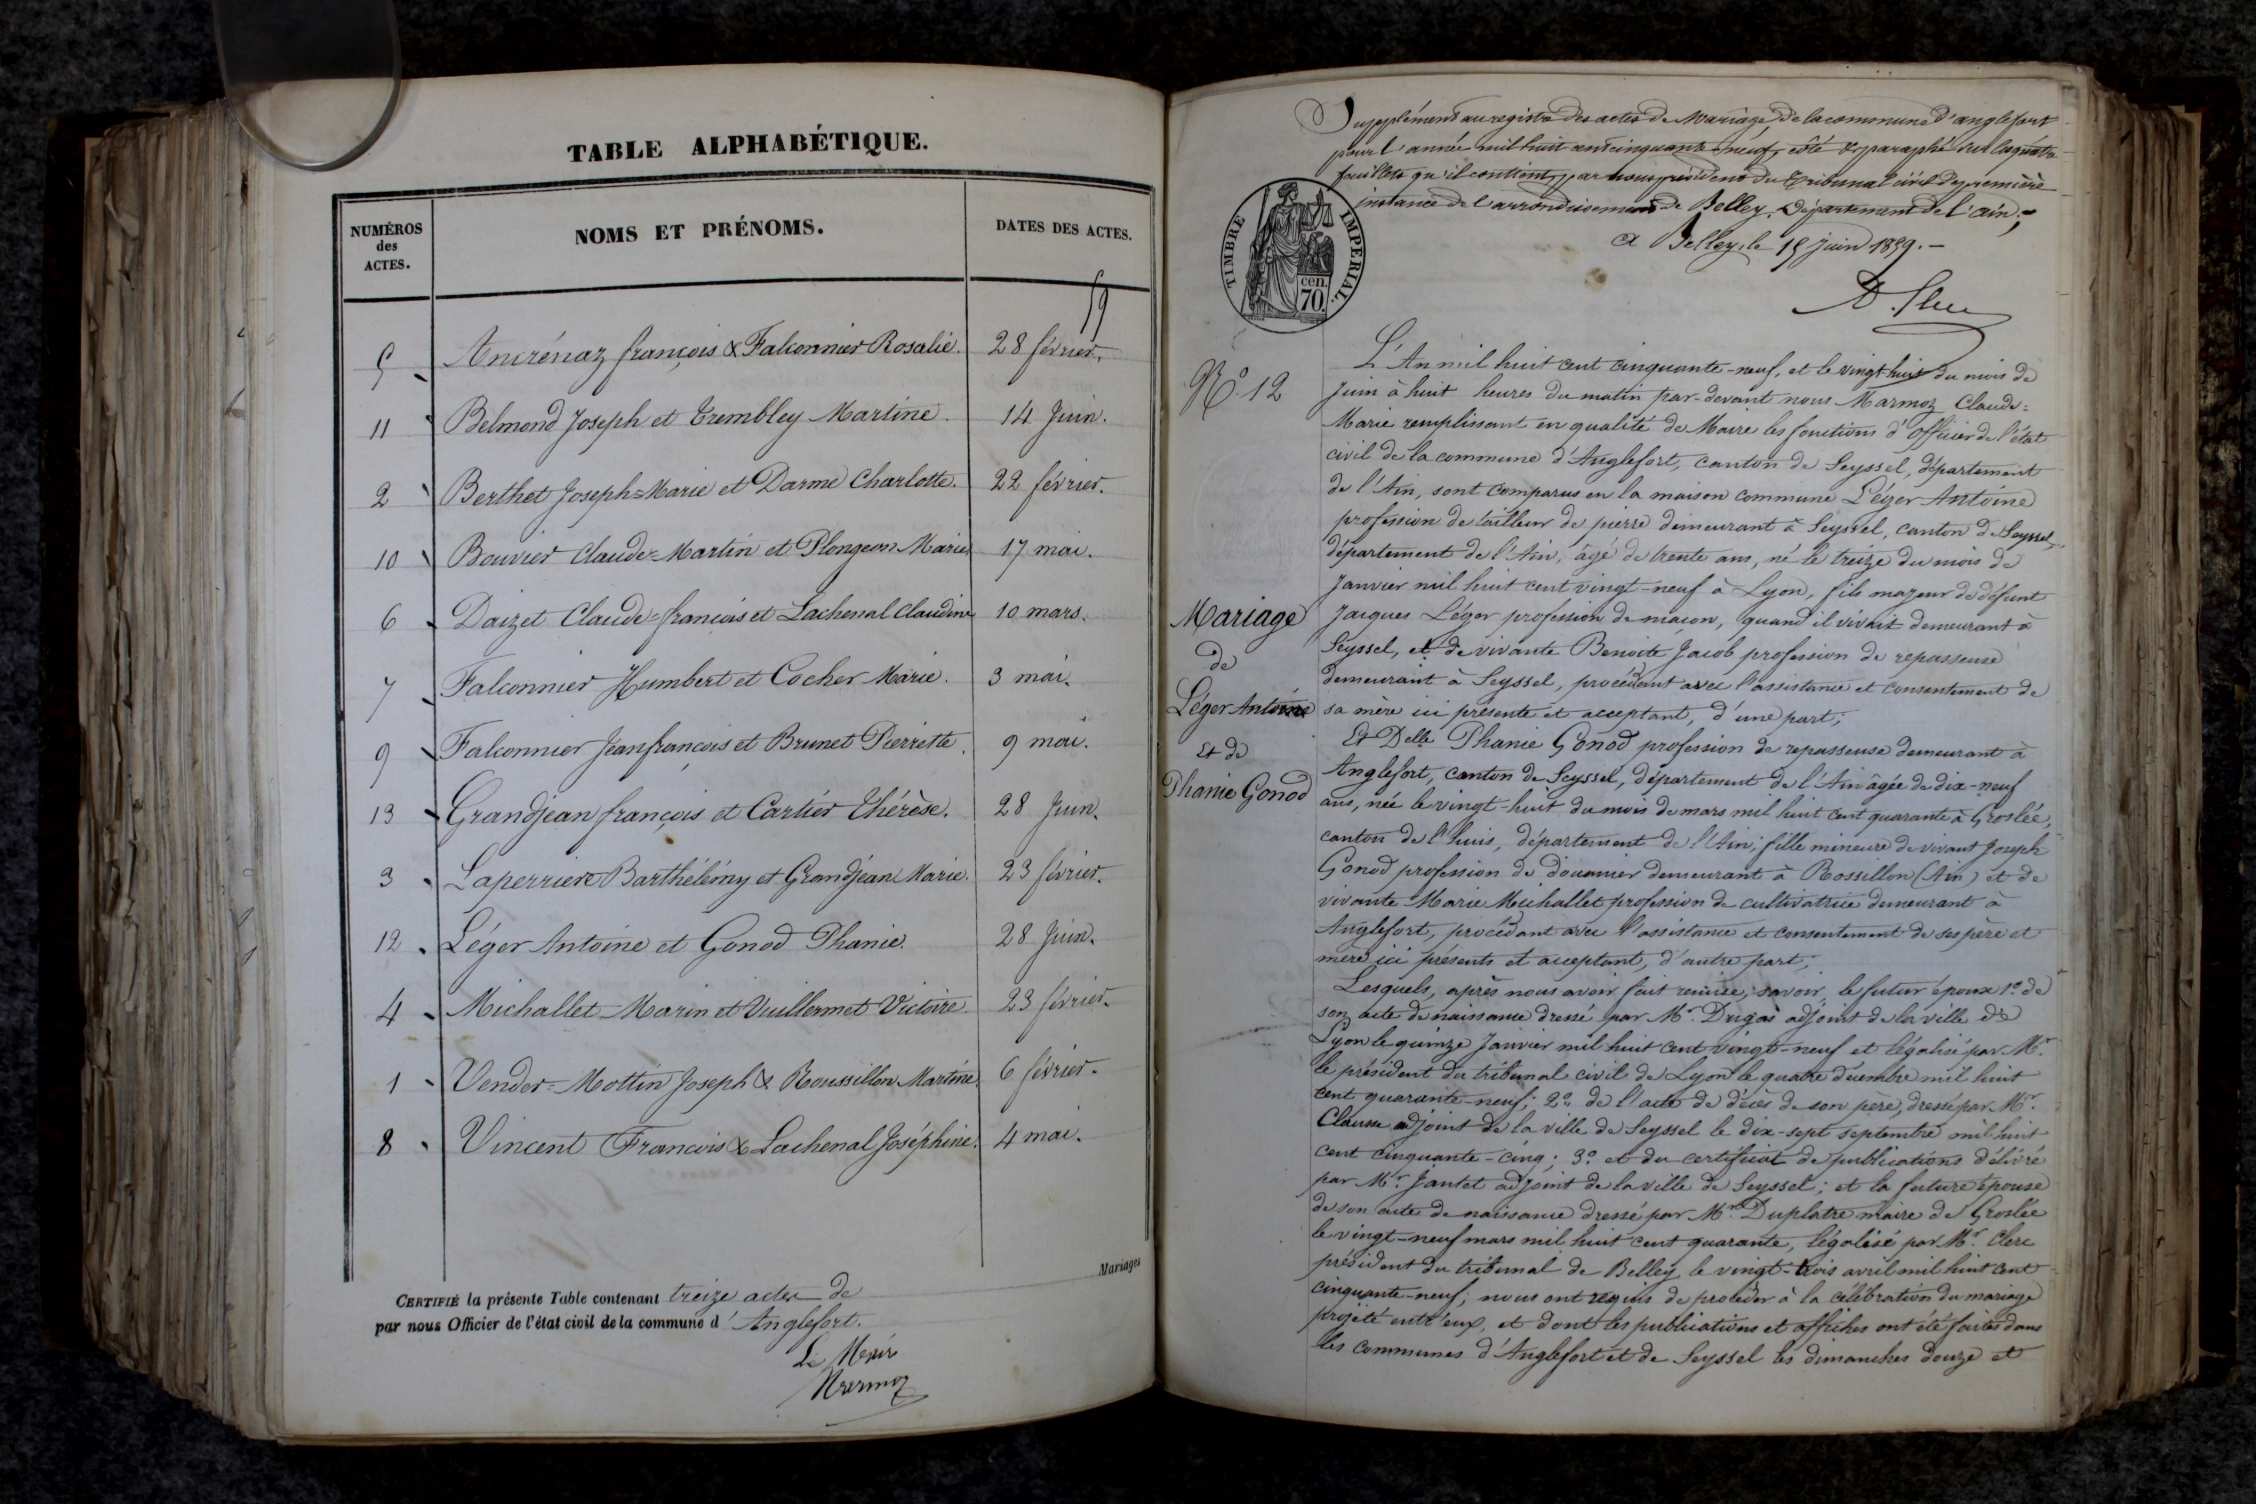 TABLE ALPHABÉTIQUE.
NUMÉROS des ACTES. NOMS ET PRÉNOMS. DATES DES ACTES.
59
5 Ancrénaz françois & Falconnier Rosalie. 28 février.
11 Belmond Joseph et Trembley Martine. 14 Juin.
2 Berthet Joseph=Marie et Darme Charlotte. 22 février.
10 Bouvier Claude=Martin et Plongeon Marie 17 mai.
6 Daizet Claude=françois et Lachenal Claudine 10 mars.
7 Falconnier Humbert et Cocher Marie. 3 mai.
9 Falconnier Jean françois et Brunet Pierrette. 9 mai.
13 Grandjean françois et Cartier Thérèse. 28 Juin.
3 Laperriere Barthélémy et Grandjean Marie. 23 février.
12 Léger Antoine et Gonod Phanie. 28 Juin.
4 Michallet Marin et Vuillermet Victoire 23 février.
1 Vender=Mottin Joseph & Roussillon Martine 6 février.
8 Vincent François & Lachenal Joséphine. 4 mai.
Mariages
CERTIFIÉ la présente Table contenant treize actes de
par nous Officier de l'état civil de la commune d'Anglefort.
Le Maire
Marmoz
Supplément au registre des actes de Mariage, de la commune d'anglefort
pour l'année mil huit cent cinquante neuf, coté & paraphé sur les quatre
feuillets qu'il contient, par nous président du Tribunal civil de première
instance de l'arrondissement de Belley, Département de l'ain,
a Belley, le 15 juin 1859.
TIMBRE IMPÉRIAL.
cen.
70.
No. 12
L'An mil huit cent cinquante-neuf, et le vingt-huit du mois de
Juin à huit heures du matin par-devant nous Marmoz Claude=
Marie remplissant en qualité de Maire les fonctions d'officier de l'état
civil de la commune d'Anglefort, canton de Seyssel, département
de l'Ain, sont comparus en la maison commune Léger Antoine
profession de tailleur de pierre demeurant à Seyssel, canton de Seyssel,
département de l'Ain, âgé de trente ans, né le treize du mois de
Janvier mil huit cent vingt-neuf à Lyon, fils majeur de défunt
Jacques Léger profession de maçon, quand il vivait demeurant à
Seyssel, et de vivante Benoite Jacob profession de repasseuse
demeurant à Seyssel, procédant avec l'assistance et consentement de
sa mère ici présente et acceptant, d'une part;
Mariage
de
Léger Antoine
et de
Phanie Gonod
Et Delle Phanie Gonod profession de repasseuse demeurant à
Anglefort, canton de Seyssel, département de l'Ain âgée de dix-neuf
ans, née le vingt-huit du mois de mars mil huit cent quarante à Groslée,
canton de l'huis, département de l'Ain; fille mineure de vivant Joseph
Gonod profession de douanier demeurant à Rossillon (Ain) et de
vivante Marie Michallet profession de cultivatrice demeurant à
Anglefort, procédant avec l'assistance et consentement de ses père et
mère ici présents et acceptant, d'autre part;
Lesquels, après nous avoir fait remise, savoir, le futur époux 1o. de
son acte de naissance dressé par Mr. Drigas adjoint de la ville de
Lyon le quinze Janvier mil huit cent vingt-neuf et légalisé par Mr.
le président du tribunal civil de Lyon le quatre décembre mil huit
cent quarante-neuf; 2o. de l'acte de décès de son père, dressé par Mr.
Clause adjoint de la ville de Seyssel le dix-sept septembre mil huit
cent cinquante-cinq; 3o. et du certificat de publications délivré
par Mr. Jantet adjoint de la ville de Seyssel; et la future épouse
de son acte de naissance dressé par Mr. Duplatre maire de Groslée
le vingt-neuf mars mil huit cent quarante, légalisé par Mr. Clerc
président du tribunal de Belley le vingt-trois avril mil huit cent
cinquante-neuf; nous ont requis de procéder à la célébration du mariage
projeté entr'eux, et dont les publications et affiches ont été faites dans
les communes d'Anglefort et de Seyssel les dimanches douze et